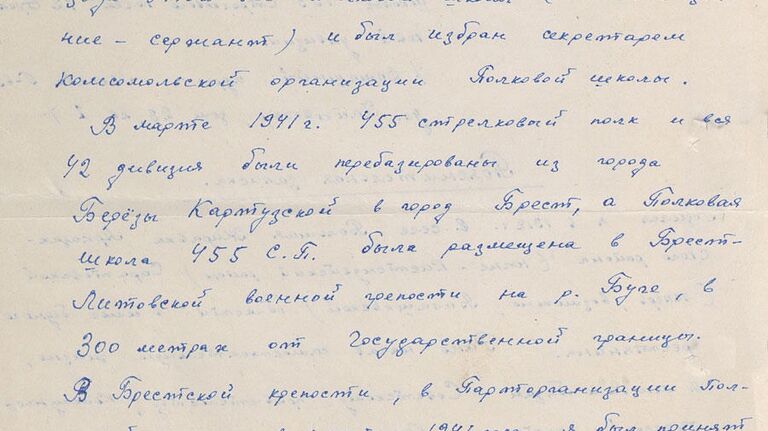 ние - сержант) и был избран секретарем
Комсомольской организации Полковой школы.
В марте 1941 г. 455 стрелковый полк и вся
42 дивизия были перебазированы из города
Берёзы Картузской в город Брест, а Полковая
школа 455 С.П. была размещена в Брест-
Литовской военной крепости на р. Буге, в
300 метрах от Государственной границы.
В Брестской крепости, в Парторганизации Пол-
1941 я был принят